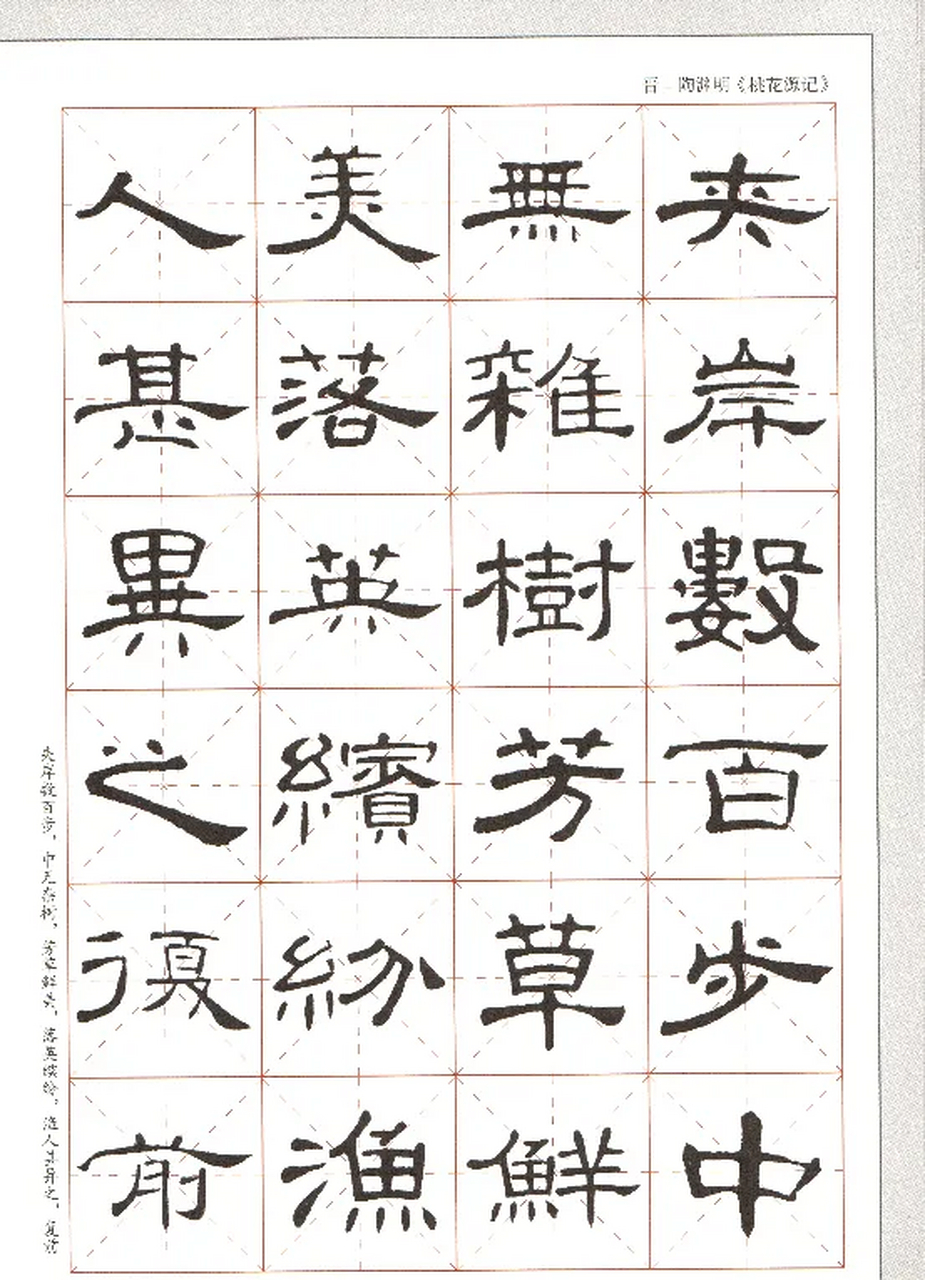 晋－陶渊明《桃花源记》
夹岸數百步中
無雜樹芳草鮮
美落英繽紛漁
人甚異之復前
夹岸数百步，中无杂树，芳草鲜美，落英缤纷，渔人甚异之，复前